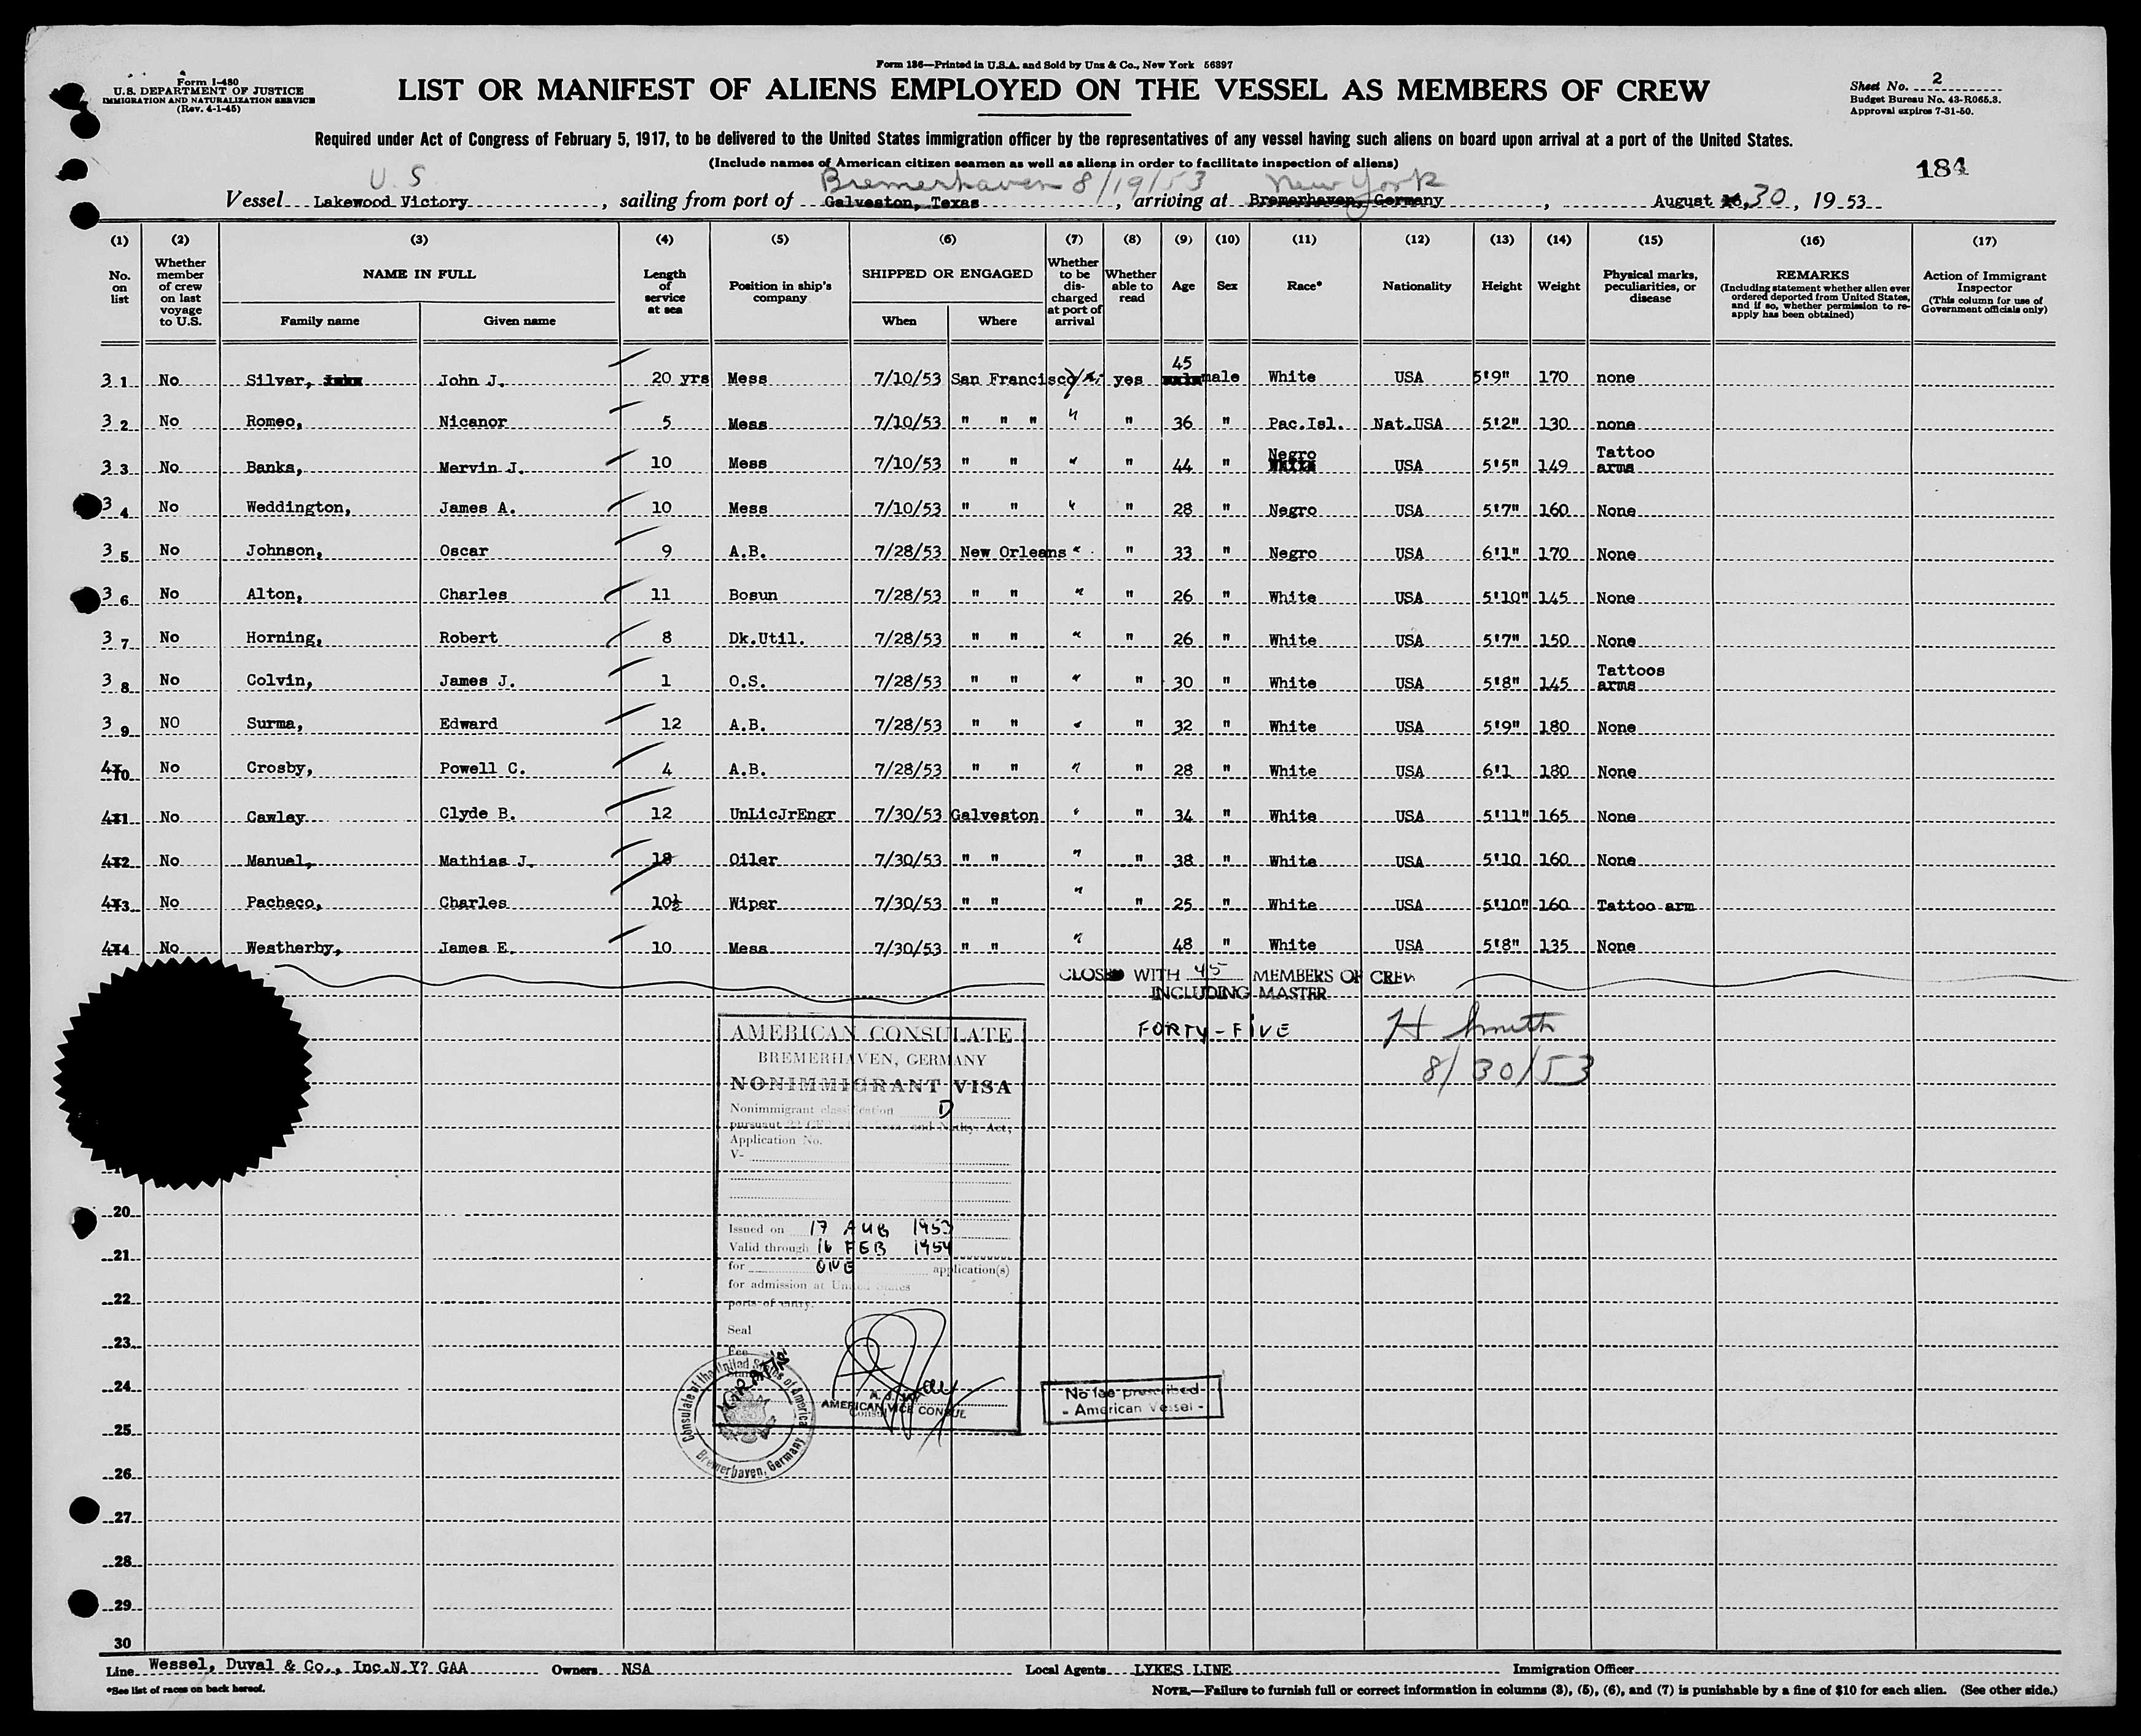 Form I-480
U.S. DEPARTMENT OF JUSTICE
IMMIGRATION AND NATURALIZATION SERVICE
(Rev. 4-1-45)
Form 186—Printed in U.S.A. and Sold by Unz & Co., New York 56897
LIST OR MANIFEST OF ALIENS EMPLOYED ON THE VESSEL AS MEMBERS OF CREW
Sheet No. 2
Budget Bureau No. 43-R065.3.
Approval expires 7-31-50.
Required under Act of Congress of February 5, 1917, to be delivered to the United States immigration officer by the representatives of any vessel having such aliens on board upon arrival at a port of the United States.
(Include names of American citizen seamen as well as aliens in order to facilitate inspection of aliens)
184
U.S Bremerhaven 8/19/53 New York
Vessel Lakewood Victory, sailing from port of Galveston, Texas, arriving at Bremerhaven, Germany, August 30, 1953
(1) (2) (3) (4) (5) (6) (7) (8) (9) (10) (11) (12) (13) (14) (15) (16) (17)
No. on list
Whether member of crew on last voyage to U.S.
NAME IN FULL
Family name Given name
Length of service at sea
Position in ship's company
SHIPPED OR ENGAGED
When Where
Whether to be discharged at port of arrival
Whether able to read
Age
Sex
Race*
Nationality
Height
Weight
Physical marks, peculiarities, or disease
REMARKS
(Including statement whether alien ever ordered deported from United States, and if so, whether permission to reapply has been obtained)
Action of Immigrant Inspector
(This column for use of Government officials only)
31 No Silver, John J. 20 yrs Mess 7/10/53 San Francisco yes 45 male White USA 5'9" 170 none
32 No Romeo, Nicanor 5 Mess 7/10/53 " " " " " 36 " Pac.Isl. Nat.USA 5'2" 130 none
33 No Banks, Mervin J. 10 Mess 7/10/53 " " " " 44 " Negro USA 5'5" 149 Tattoo arms
34 No Weddington, James A. 10 Mess 7/10/53 " " " " 28 " Negro USA 5'7" 160 None
35 No Johnson, Oscar 9 A.B. 7/28/53 New Orleans " " 33 " Negro USA 6'1" 170 None
36 No Alton, Charles 11 Bosun 7/28/53 " " " " 26 " White USA 5'10" 145 None
37 No Horning, Robert 8 Dk.Util. 7/28/53 " " " " 26 " White USA 5'7" 150 None
38 No Colvin, James J. 1 O.S. 7/28/53 " " " " 30 " White USA 5'8" 145 Tattoos arms
39 NO Surma, Edward 12 A.B. 7/28/53 " " " " 32 " White USA 5'9" 180 None
40 No Crosby, Powell C. 4 A.B. 7/28/53 " " " " 28 " White USA 6'1 180 None
41 No Cawley Clyde B. 12 UnLicJrEngr 7/30/53 Galveston " " 34 " White USA 5'11" 165 None
42 No Manuel, Mathias J. 18 Oiler 7/30/53 " " " " 38 " White USA 5'10 160 None
43 No Pacheco, Charles 10½ Wiper 7/30/53 " " " " 25 " White USA 5'10" 160 Tattoo arm
44 No Westherby, James E. 10 Mess 7/30/53 " " " 48 " White USA 5'8" 135 None
CLOSED WITH 45 MEMBERS OF CREW
INCLUDING MASTER
FORTY-FIVE
H Smith
8/30/53
AMERICAN CONSULATE
BREMERHAVEN, GERMANY
NONIMMIGRANT VISA
Nonimmigrant classification D
pursuant 22 and Natlty. Act;
Application No.
V-
Issued on 17 AUG 1953
Valid through 16 FEB 1954
for ONE application(s)
for admission at United States
ports of entry.
Seal
Fee
AMERICAN VICE CONSUL
Consulate of the United States of America
Bremerhaven, Germany
No fee prescribed
- American Vessel -
20
21
22
23
24
25
26
27
28
29
30
Line Wessel, Duval & Co., Inc.N.Y? GAA Owners NSA Local Agents LYKES LINE Immigration Officer
*See list of races on back hereof.
NOTE.—Failure to furnish full or correct information in columns (3), (5), (6), and (7) is punishable by a fine of $10 for each alien. (See other side.)